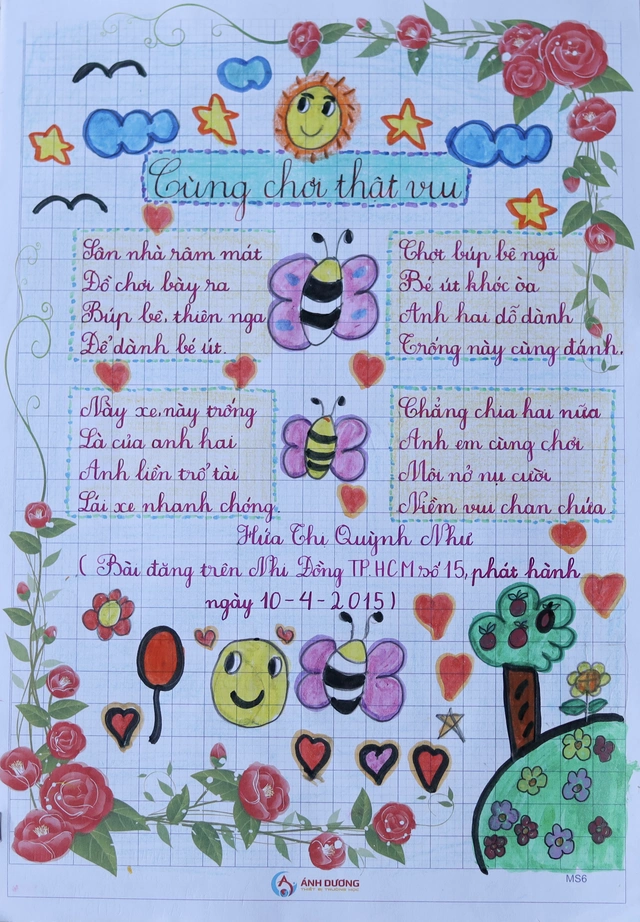 Cùng chơi thật vui
Sân nhà râm mát
Đồ chơi bày ra
Búp bê, thiên nga
Để dành bé út.
Này xe, này trống
Là của anh hai
Anh liền trổ tài
Lái xe nhanh chóng.
Chợt búp bê ngã
Bé út khóc òa
Anh hai dỗ dành
Trống này cùng đánh.
Chẳng chia hai nữa
Anh em cùng chơi
Môi nở nụ cười
Niềm vui chan chứa
Hứa Thị Quỳnh Như
( Bài đăng trên Nhi Đồng TP.HCM số 15, phát hành
ngày 10-4-2015)
ÁNH DƯƠNG
THIẾT BỊ TRƯỜNG HỌC
MS6